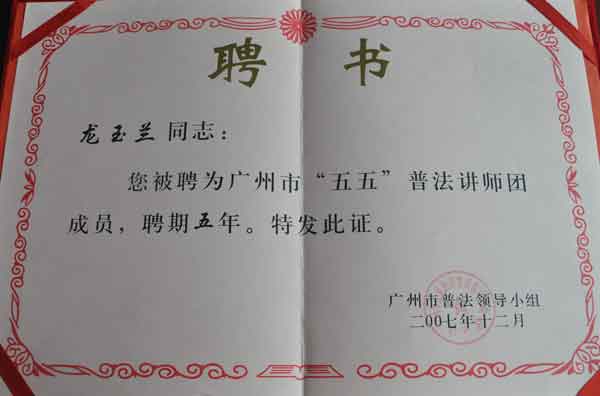 聘 书
龙玉兰 同志：
您被聘为广州市“五五”普法讲师团
成员，聘期五年。特发此证。
广州市普法领导小组
二00七年十二月